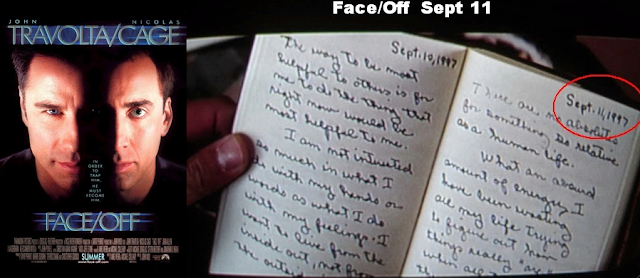 Face/Off Sept 11
JOHN NICOLAS
TRAVOLTA/CAGE
IN
ORDER
TO
TRAP
HIM,
HE
MUST
BECOME
HIM.
FACE/OFF
SUMMER
Sept. 10, 1997
The way to be most
helpful to others is for
me to do the thing that
right now would be
most helpful to me.
I am not interested
as much in what I do
with my hands or
words as what I do
with my feelings. I
want to live from the
inside out, not from
Sept. 11, 1997
There are no absolutes
for something so relative
as a human life.
What an absurd
amount of energy I
have been wasting
all my life trying
to figure out how
things really are,
when all